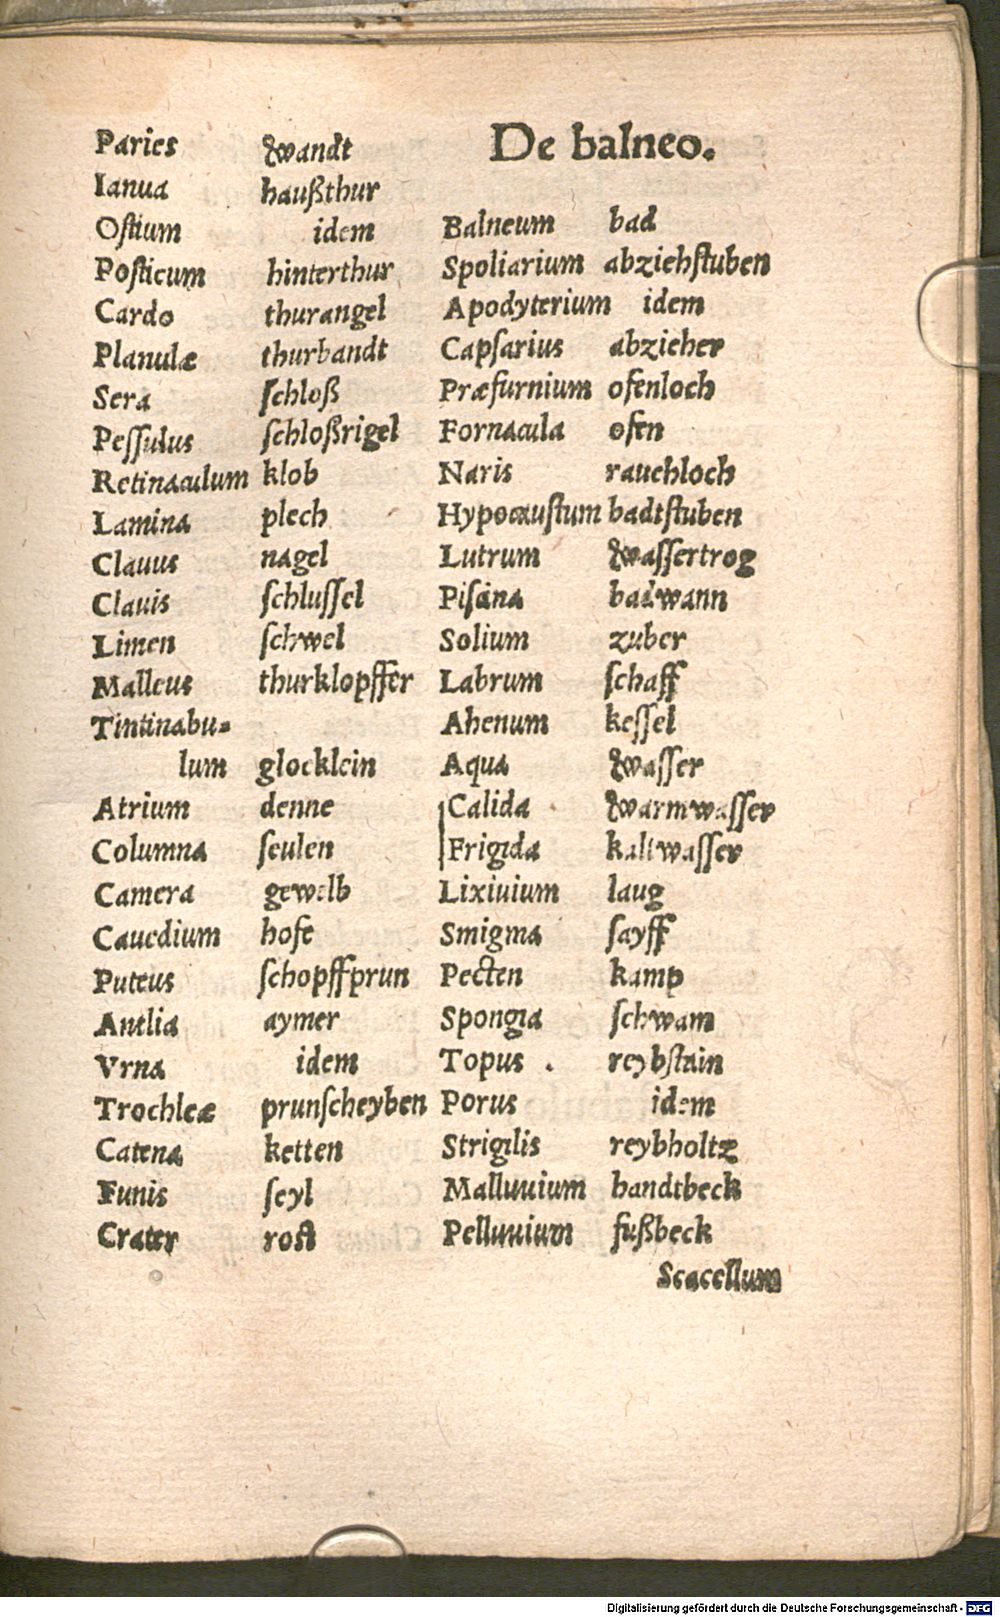 Paries wandt
Ianua haußthur
Oſtium idem
Poſticum hinterthur
Cardo thurangel
Planulæ thurbandt
Sera ſchloß
Peſſulus ſchloßrigel
Retinaculum klob
Lamina plech
Clauus nagel
Clauis ſchluſſel
Limen ſchwel
Malleus thurklopffer
Tintinabu-
lum glocklein
Atrium denne
Columna ſeulen
Camera gewelb
Cauedium hofe
Puteus ſchopffprun
Antlia aymer
Vrna idem
Trochleæ prunſcheyben
Catena ketten
Funis ſeyl
Crater roſt
De balneo.
Balneum bad
Spoliarium abziehſtuben
Apodyterium idem
Capſarius abzieher
Præfurnium ofenloch
Fornacula ofen
Naris rauchloch
Hypocauſtum badtſtuben
Lutrum waſſertrog
Piſana badwann
Solium zuber
Labrum ſchaff
Ahenum keſſel
Aqua waſſer
Calida warmwaſſer
Frigida kaltwaſſer
Lixiuium laug
Smigma ſayff
Pecten kamp
Spongia ſchwam
Topus reybſtain
Porus idem
Strigilis reybholtz
Malluuium handtbeck
Pelluuium fußbeck
Scacellum
Digitalisierung gefördert durch die Deutsche Forschungsgemeinschaft - DFG